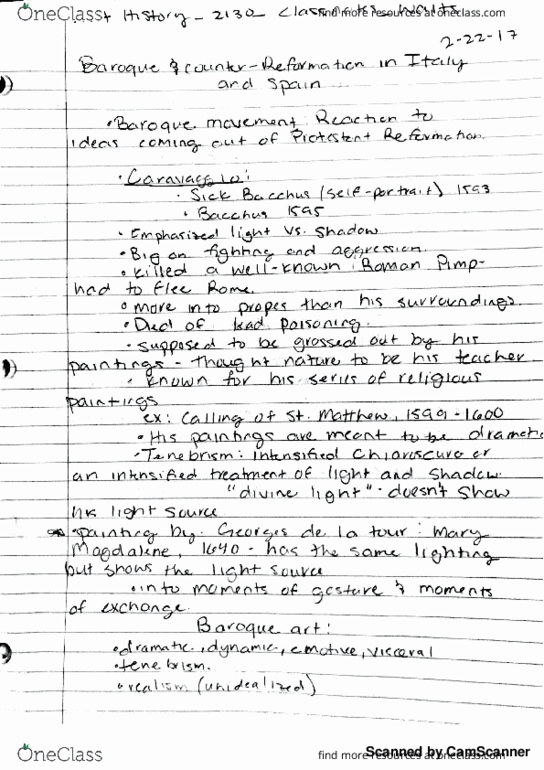 OneClass
Art History - 2130 Class notes
find more resources at oneclass.com
2-22-17
Baroque & counter-Reformation in Italy
and Spain
• Baroque movement Reaction to
ideas coming out of Protestent Reformation.
• Caravaggio:
• Sick Bacchus (self-portrait) 1593
• Bacchus 1595
• Emphasized light vs. shadow
• Big on fighting and aggression.
• killed a well-known Roman Pimp-
had to flee Rome.
• more into propes than his surroundings.
• Died of lead poisoning.
• supposed to be grossed out by his
paintings - thought nature to be his teacher
• known for his series of religious
paintings
ex: Calling of St. Matthew, 1599-1600
• His paintings are meant to be dramatic
• Tenebrism: intensified chiaroscuro or
an intensified treatment of light and shadow.
"divine light" - doesn't show
light source
• painting by Georges de la tour: Mary
Magdalene, 1640 - has the same lighting
but shows the light source
• into moments of gesture & moments
of exchange.
Baroque art:
• dramatic, dynamic, emotive, visceral
• tenebrism.
• realism (unidealized)
OneClass
find more resources at oneclass.com
Scanned by CamScanner